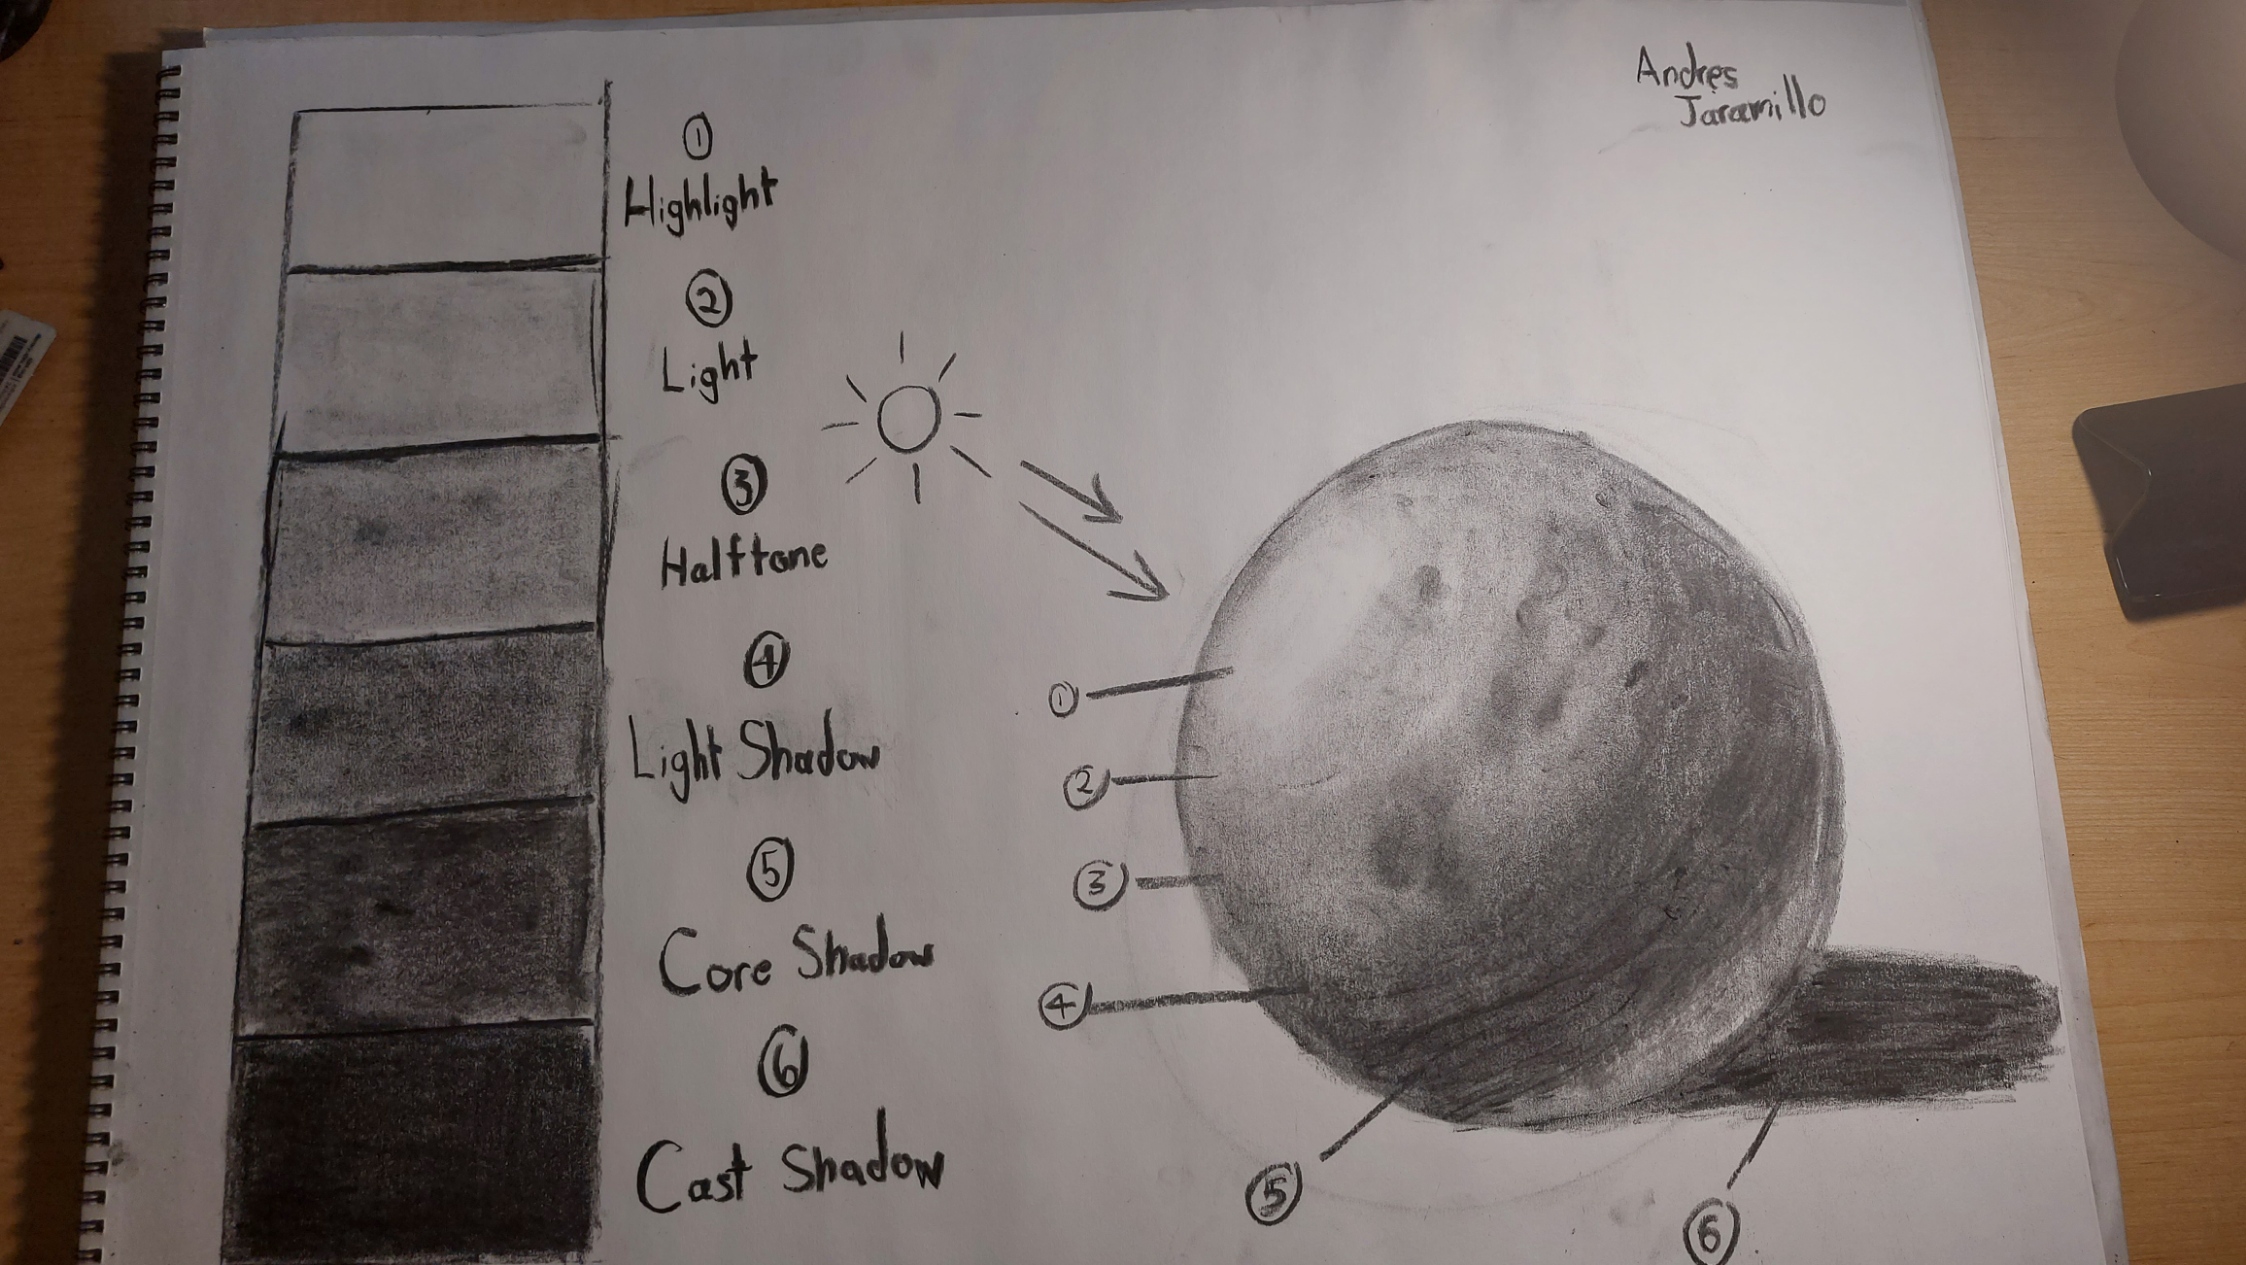 Andres
Jaramillo
①
Highlight
②
Light
③
Halftone
④
Light Shadow
⑤
Core Shadow
⑥
Cast Shadow
①
②
③
④
⑤
⑥